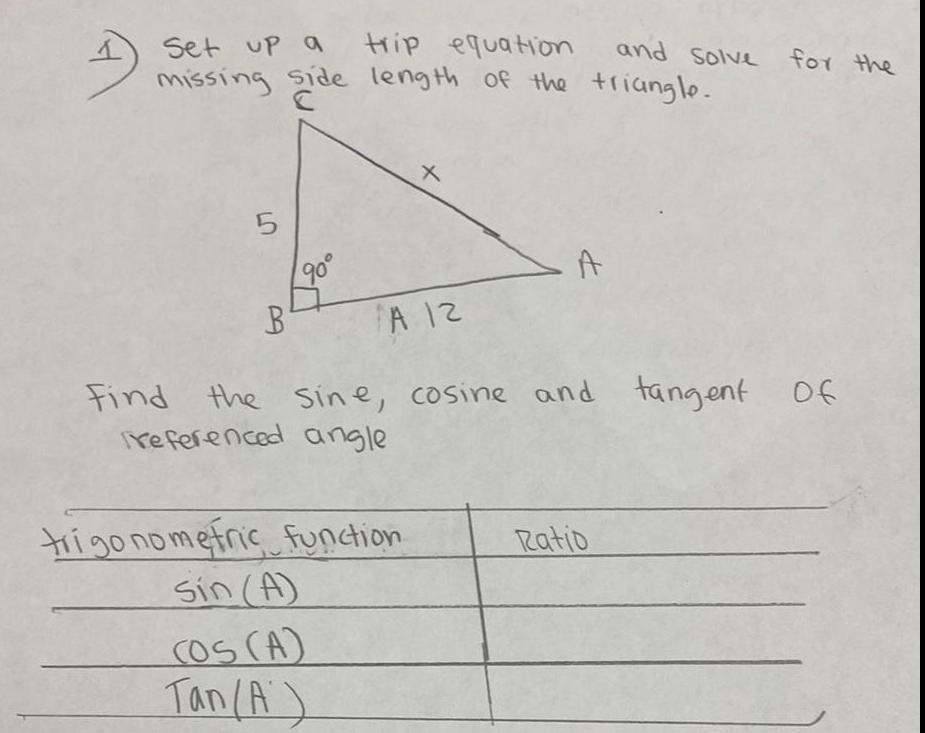 1) Set up a trip equation and solve for the
missing side length of the triangle.
C
x
5
90°
A
B
A 12
Find the sine, cosine and tangent of
referenced angle
trigonometric function Ratio
sin(A)
cos(A)
Tan(A)